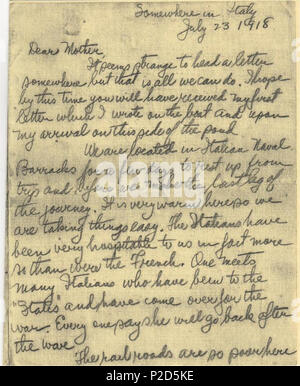 Somewhere in Italy
July 23 1918
Dear Mother
It seems strange to head a letter
somewhere but that is all we can do. I hope
by this time you will have received my first
letter which I wrote on the boat and upon
my arrival on this side of the pond
We are located in Italian Naval
Barracks for a few days to rest up from
trip and again we make the last leg of
the journey. It is very warm here so we
are taking things easy. The Italians have
been very hospitable to us in fact more
so than were the French. One meets
many Italians who have been to the
"States" and have come over for the
war. Every one says he will go back after
the war
The railroads are so poor here
alamy
www.alamy.com
2P2D5KE